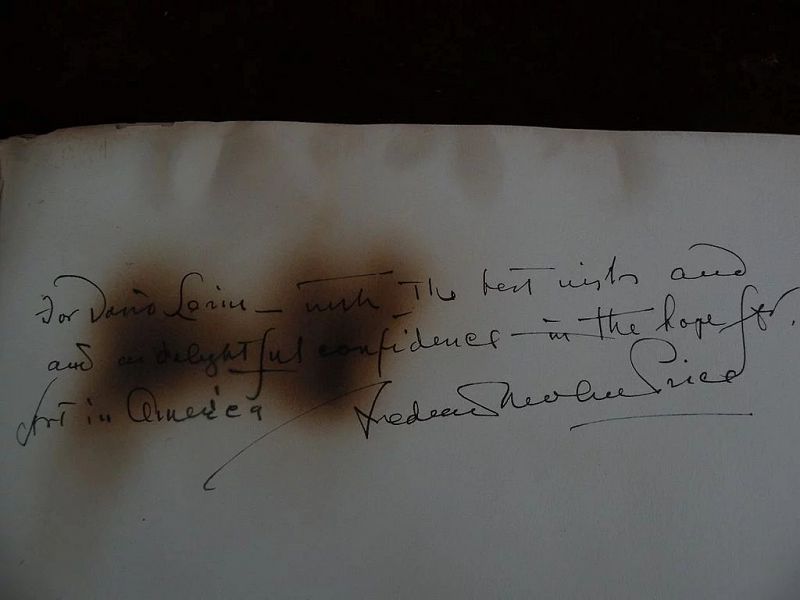 For David Levine — with the best wishes and
and a delightful confidence in the hope for
Art in America Frederic Newlin Price